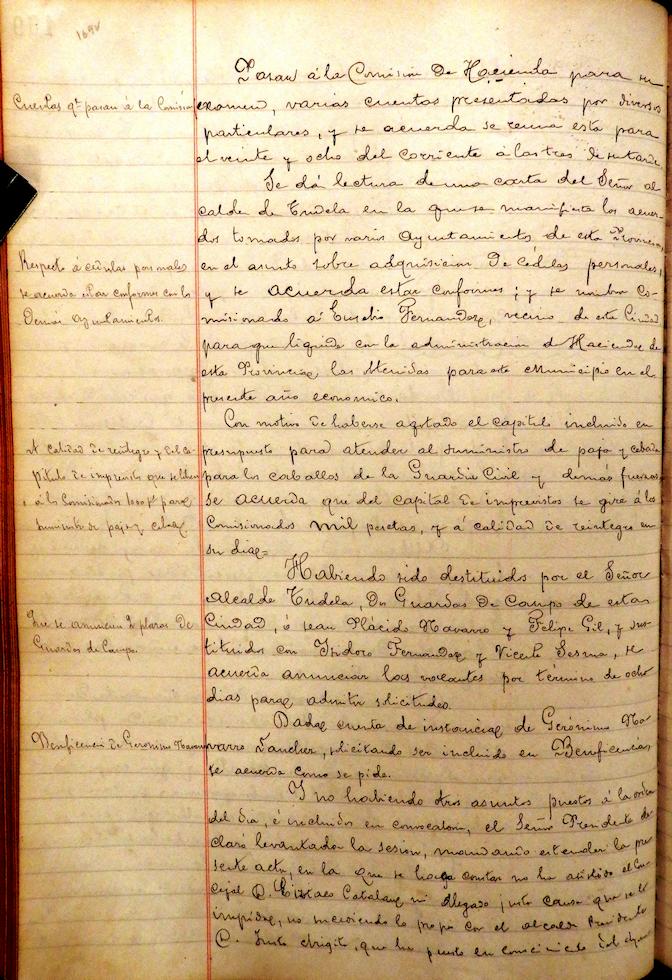 169v
Pasan á la Comision de Hacienda para su
Cuentas qe pasan á la Comision
examen, varias cuentas presentadas por diversos
particulares, y se acuerda se reuna esta para
el veinte y ocho del corriente á las tres de su tarde
Se dá lectura de una carta del Señor al
calde de Tudela en la que se manifiesta los acuer
dos tomados por varios Ayuntamientos de esta Provincia
Respecto á cédulas personales
se acuerda estar conformes con los
Demas Ayuntamientos.
en el asunto sobre adquisicion de cédulas personales,
y se acuerda estar conformes; y se nombra Co-
misionado á Eusebio Fernandez, vecino de esta Ciudad
para que liquide con la administracion de Hacienda de
esta Provincia, las obtenidas para este Municipio en el
presente año economico.
Con motivo de haberse agotado el capitulo incluido en
A calidad de reintegro y del ca
pitulo de imprevistos que se libren
á los Comisionados 1000 pts para
suministro de paja y cebada
presupuesto para atender al suministro de paja y cebada
para los caballos de la Guardia Civil y demás fuerzas
se acuerda que del capital de imprevistos se gire á los
Comisionados mil pesetas, y á calidad de reintegro en
su dia=
Habiendo sido destituidos por el Señor
Alcalde Tudela, dos Guardas de Campo de esta
Que se anuncien 2 plazas de
Guardas de Campo.
Ciudad, ó sean Plácido Navarro y Felipe Gil, y sus
tituidos con Isidoro Fernandez y Vicente Sesma, se
acuerda anunciar las vacantes por término de ocho
dias para admitir solicitudes.
Dada cuenta de instancia de Gerónimo Na-
Beneficencia de Geronimo Navarro
varro Sanchez, solicitando ser incluido en Beneficencia
se acuerda como se pide.
Y no habiendo otros asuntos puestos á la orden
del dia, é incluidos en convocatoria, el Señor Presidente de
claró levantada la sesion, mandando estender la pre
sente acta, en la que se haga constar no ha asistido el Con
cejal D. Catalan ni alegado justa causa que se lo
impidiera, no haciendo lo propio con el alcalde Presidente
D. Justo que ha puesto en conocimiento